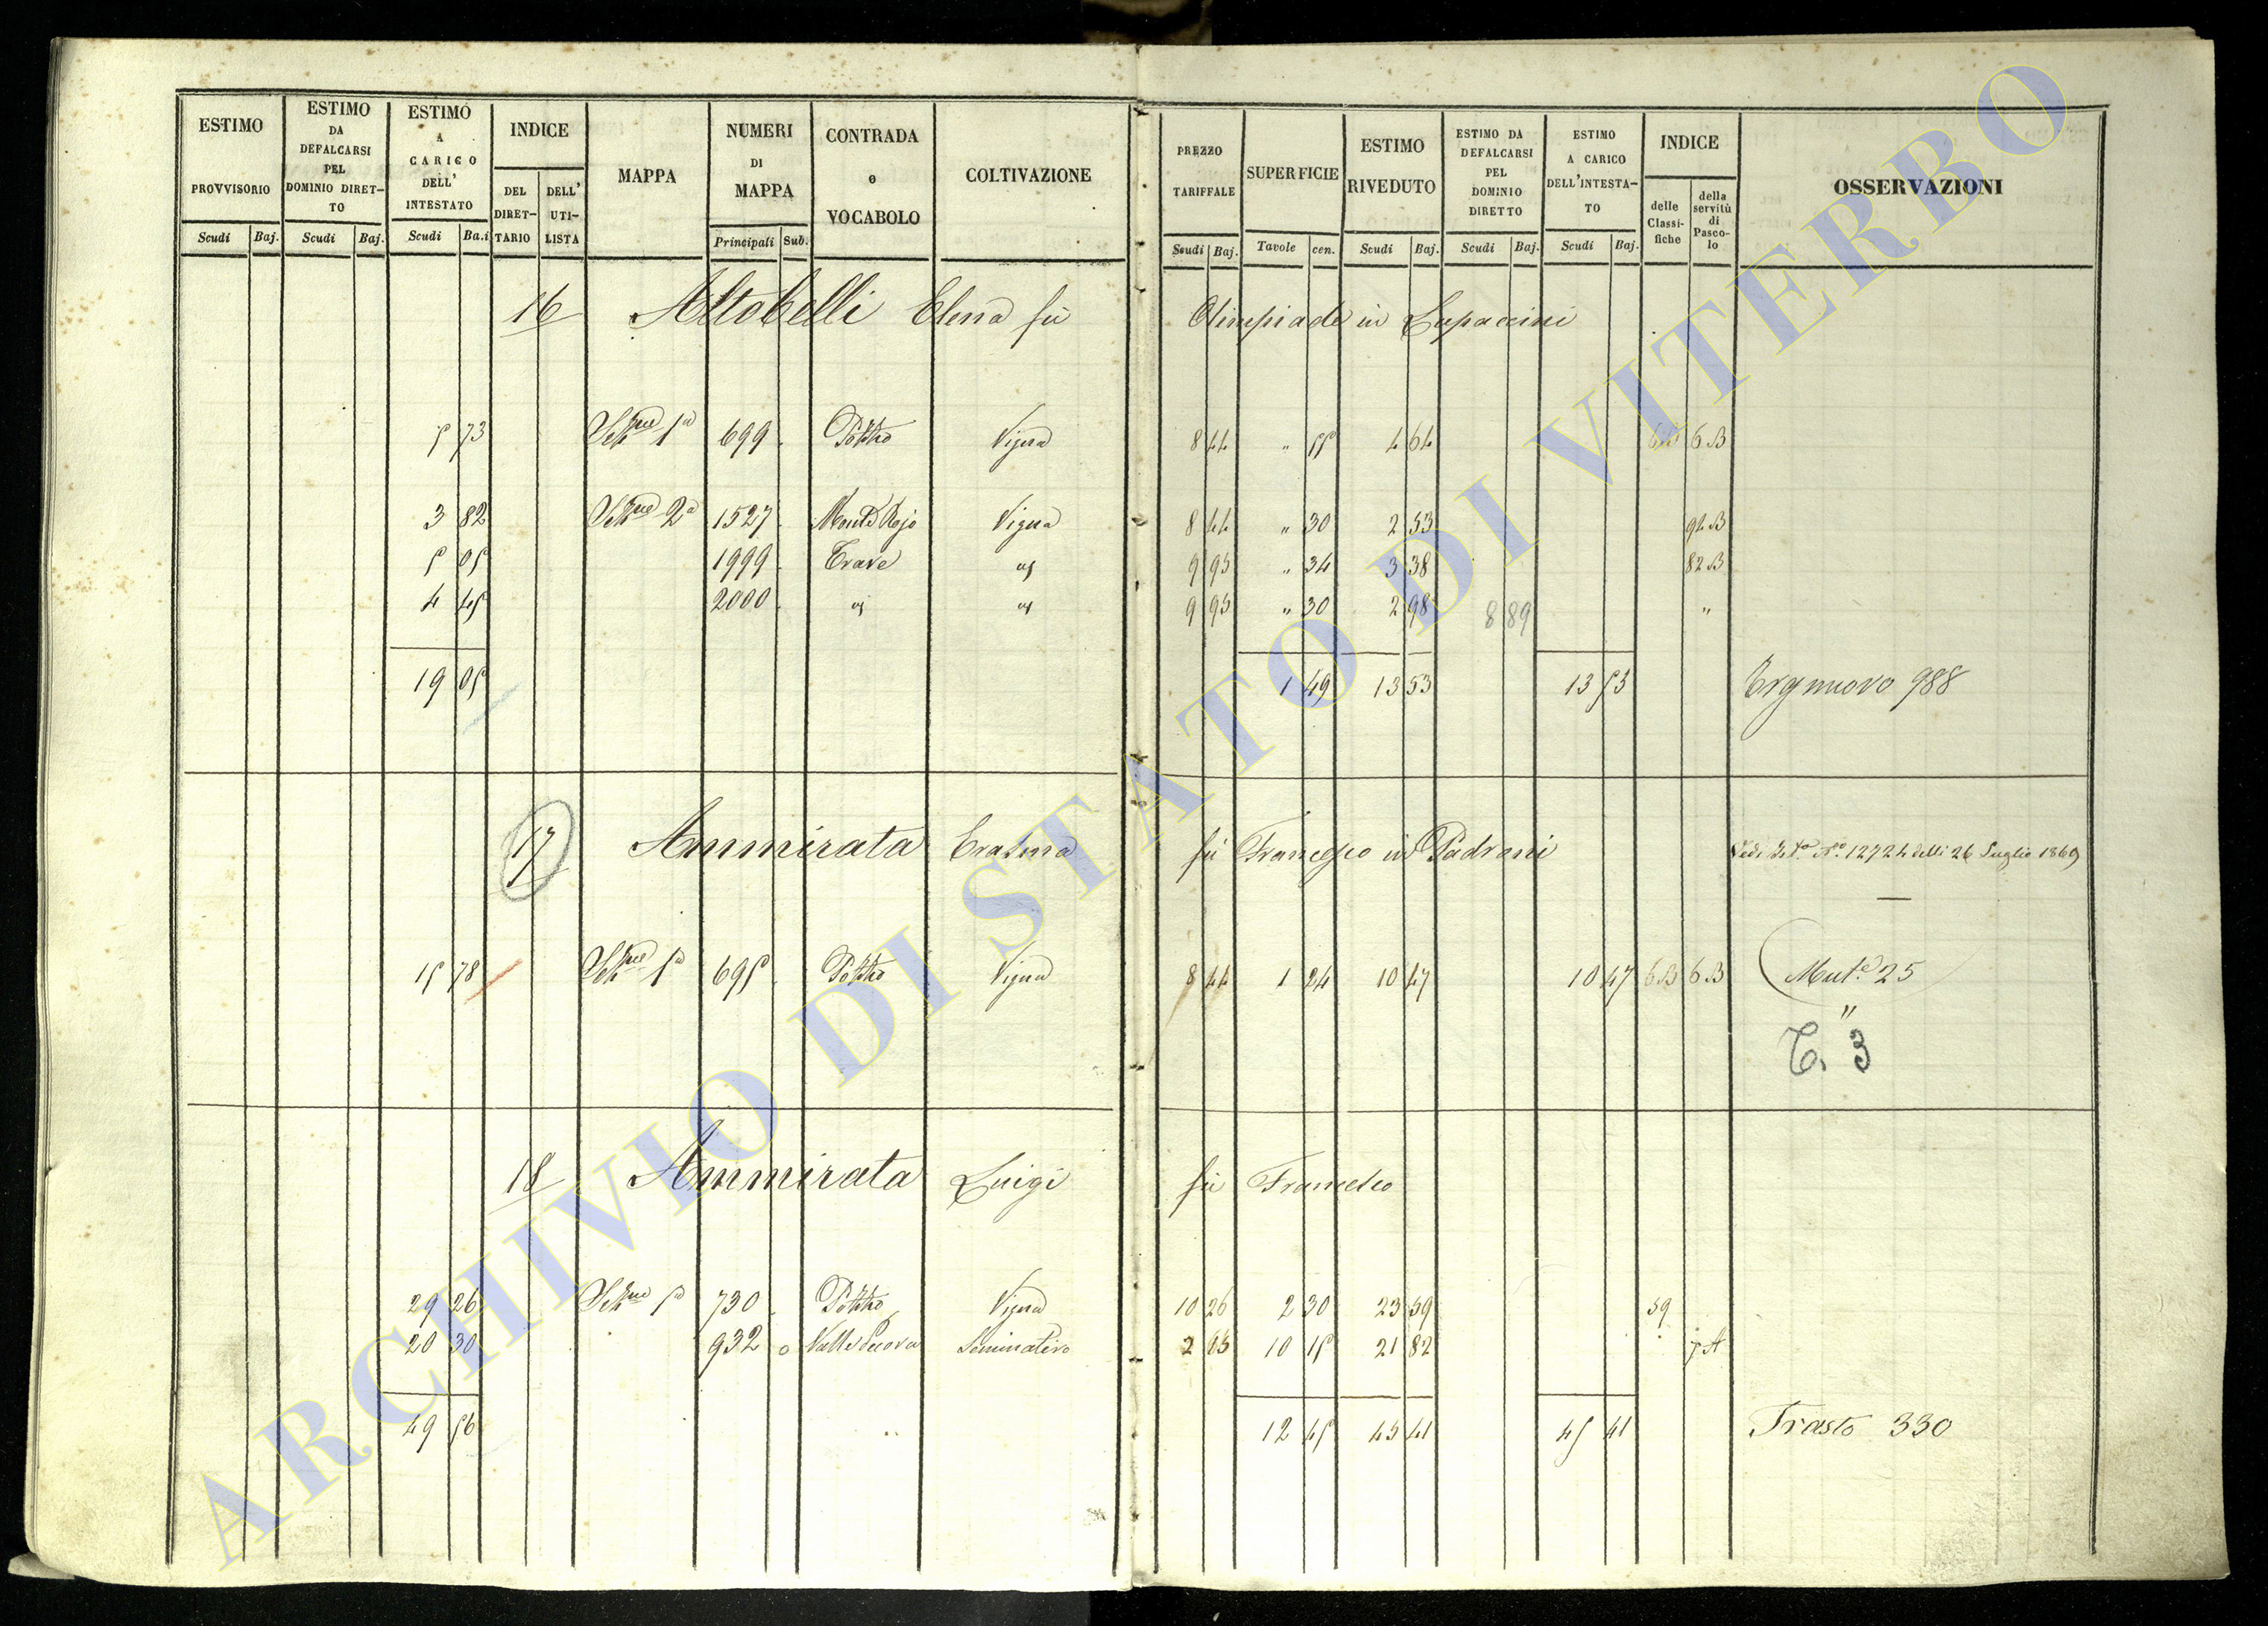 ESTIMO PROVVISORIO Scudi Baj.
ESTIMO DA DEFALCARSI PEL DOMINIO DIRET-TO Scudi Baj.
ESTIMO A CARICO DELL' INTESTATO Scudi Ba.i
INDICE DEL DIRET-TARIO DELL' UTI-LISTA
MAPPA
NUMERI DI MAPPA Principali Sub.
CONTRADA e VOCABOLO
COLTIVAZIONE
PREZZO TARIFFALE Scudi Baj.
SUPERFICIE Tavole cen.
ESTIMO RIVEDUTO Scudi Baj.
ESTIMO DA DEFALCARSI PEL DOMINIO DIRETTO Scudi Baj.
ESTIMO A CARICO DELL'INTESTA-TO Scudi Baj.
INDICE delle Classi-fiche della servitù di Pasco-lo
OSSERVAZIONI
16 Altobelli Elena fù Olimpiade in Lupaccini
5 73 1ª 699 Vigna 8 44 " 55 4 64 6 B
3 82 2ª 1527 Vigna 8 44 " 30 2 53 94 B
5 05 1999 Trave 9 95 " 34 3 38 82 B
4 45 2000 9 95 " 30 2 98 8 89 "
19 05 1 49 13 53 13 53 988
17 Ammirata fù Francesco in Padroni 12724 delli 26 Luglio 1869
15 78 1ª 695 Vigna 8 44 1 24 10 47 10 47 6 B 6 B Mut.e 25
"
T. 3
18 Ammirata Luigi fù Francesco
29 26 1ª 730 Vigna 10 26 2 30 23 59 59
20 30 932 Seminativo 2 15 10 15 21 82 7 A
49 56 12 45 45 41 45 41 Trasto 330
ARCHIVIO DI STATO DI VITERBO